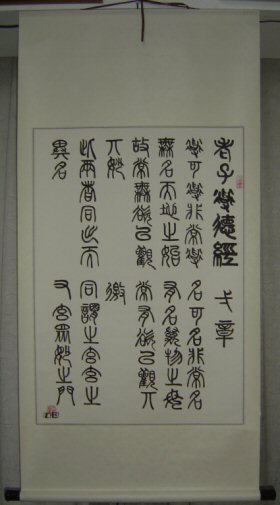 老子道德經 弌章
道可道非常道
名可名非常名
無名天地之始
有名萬物之母
故常無欲以觀
丌妙
常有欲以觀丌
徼
此兩者同出而
異名
同謂之玄玄之
又玄眾妙之門